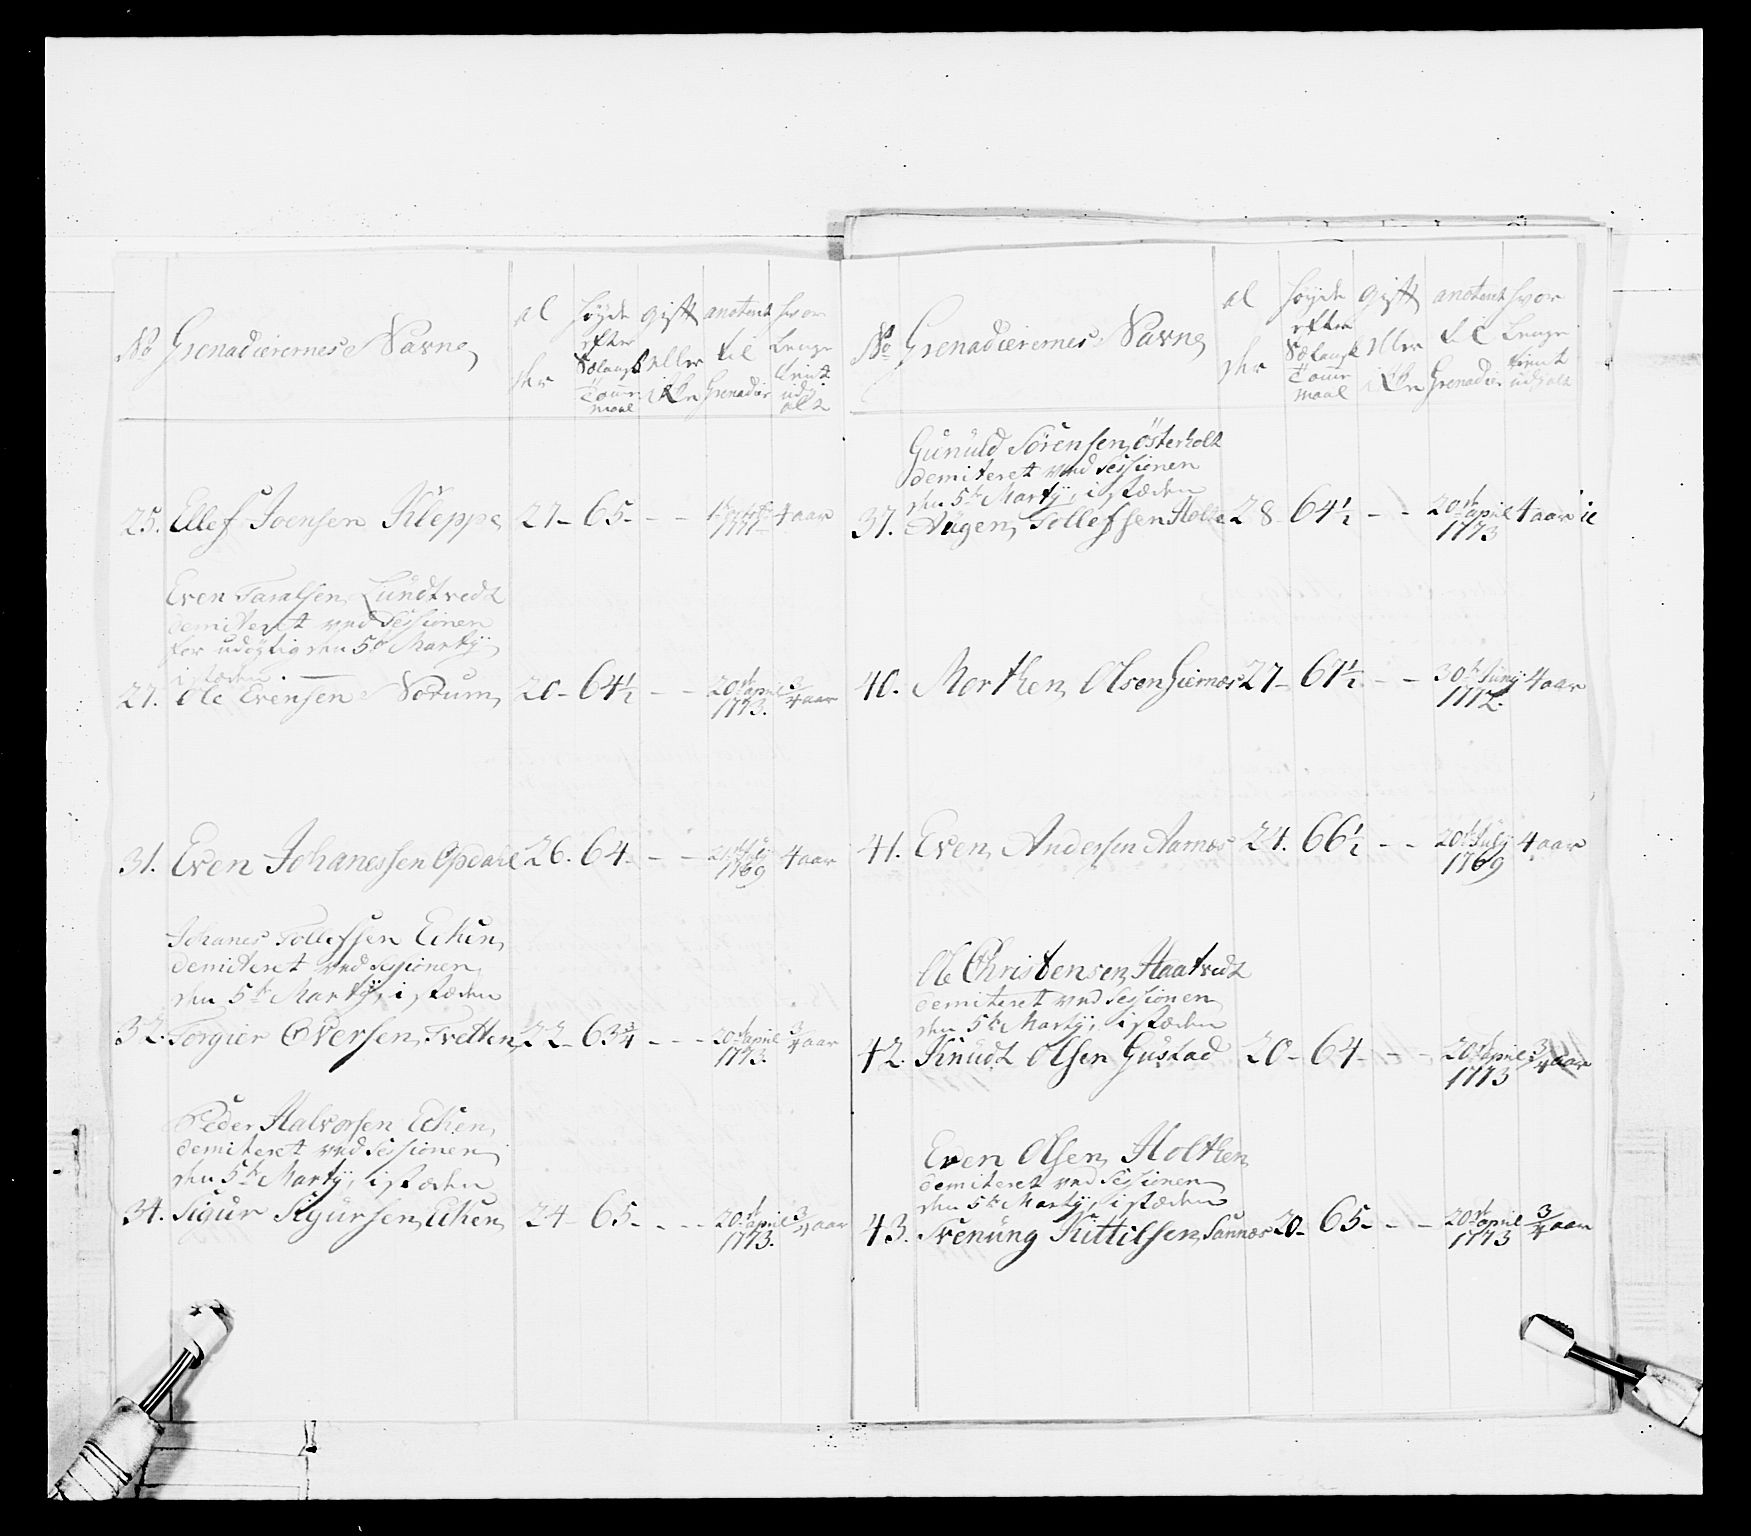 No Grenadierernes Navne
al
der
høyde
efter
Sælansk
Tomme
maal
gift
eller
ikke
anotert
til
Grenadier
hvor
lenge
tient
ud i
alt
25. Ellef Joensen Kleppe 27 - 65 - - - 1771 4 aar
Even Taralsen Lundtvedt
demiteret ved Sessionen
for udøgtig den 5te Martÿ
i stæden
27. Ole Evensen Norum 20 - 64½ - - 20de april 1773. ¾ aar
31. Even Johanessen Opdahl 26. 64. - - 1769 4 aar
Johanes Tollefssen Echen
demiteret ved Sessionen
den 5te Martÿ, i stæden
32. Torgier Eversen Tvetten 22 - 63¾ - - - 20de april 1773. ¾ aar
Peder Halvorsen Echen
demiteret ved Sessionen
den 5te Martÿ, i stæden
34. Sigur Sigursen Echen 24 - 65 - - - 20de april 1773. ¾ aar
No Grenadierernes Navne
al
der
høyde
efter
Sælansk
Tomme
maal
gift
eller
ikke
anotert
til
Grenadier
hvor
lenge
tient
ud i alt
Gunuld Sørensen Österholt
demiteret ved Sessionen
den 5te Martÿ, i stæden
37. Augen Tollefssen Holte 28 64½ - - 20de april 1773 4 aar
40. Morthen Olsen 27 - 67½ - - 30te Junÿ 1772. 4 aar
41. Even Andersen Aarnæs 24. 66½ - - 20de Julÿ 1769 4 aar
Ole Christensen Haatvedt
demiteret ved Sessionen
den 5te Martÿ, i stæden
42. Knudt Olsen Gustad 20 - 64 - - - 20de april 1773 ¾ aar
Even Olsen Holthen
demiteret ved Sessionen
den 5te Martÿ, i stæden
43. Svenung Kittilsen Sannæs 20 - 65 - - - 20de april 1773 ¾ aar